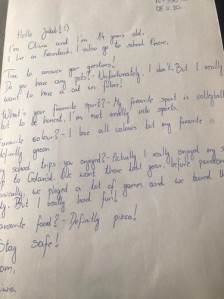 Hello Jakub! :)
I'm Oliwia and I'm 14 years old.
I live in I also go to school
Time to answer your questions!
Do you have any pets? - Unfortunately, I don't. But I really
want to have a cat in future!
What's your favourite sport? - My favourite sport is volleyball
but to be honest, I'm not really into sports.
Favourite colour? - I love all colours but my favourite is
definitly green
school trips you enjoyed? - Actually I really enjoyed my
to Gdańsk. We went there last year, before pandemic
we played a lot of games and we toured the
But I really had fun!
favourite food? - Definitly pizza!
Stay safe!